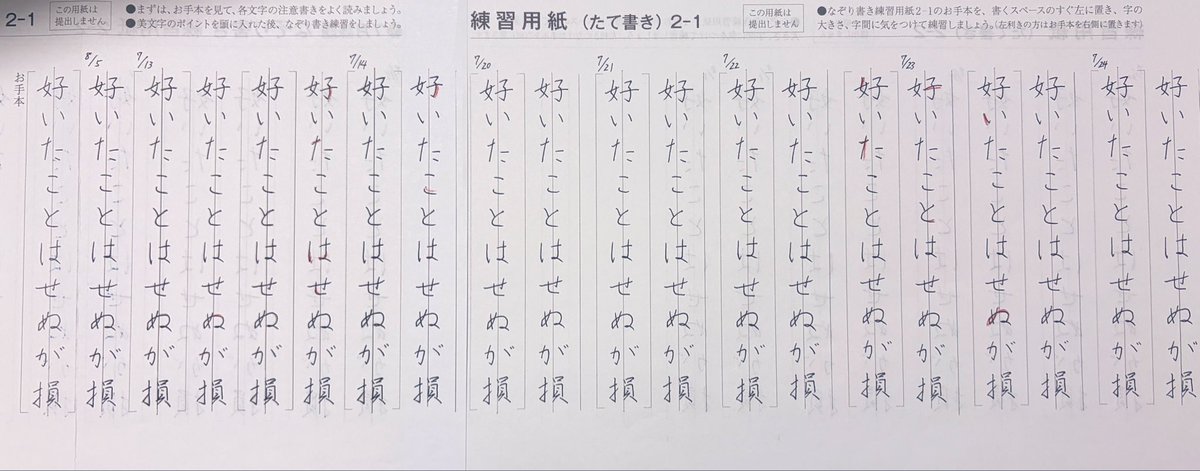 2-1
この用紙は
提出しません
●まずは、お手本を見て、各文字の注意書きをよく読みましょう。
●美文字のポイントを頭に入れた後、なぞり書き練習をしましょう。
お手本
好いたことはせぬが損
8/5
好いたことはせぬが損
7/13
好いたことはせぬが損
好いたことはせぬが損
好いたことはせぬが損
好いたことはせぬが損
7/14
好いたことはせぬが損
好いたことはせぬが損
練習用紙(たて書き)2-1
この用紙は
提出しません
●なぞり書き練習用紙2-1のお手本を、書くスペースのすぐ左に置き、字の
大きさ、字間に気をつけて練習しましょう。(左利きの方はお手本を右側に置きます)
7/20
好いたことはせぬが損
好いたことはせぬが損
7/21
好いたことはせぬが損
好いたことはせぬが損
7/22
好いたことはせぬが損
好いたことはせぬが損
好いたことはせぬが損
7/23
好いたことはせぬが損
好いたことはせぬが損
好いたことはせぬが損
7/24
好いたことはせぬが損
好いたことはせぬが損